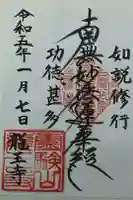 如説修行
南無妙法蓮華経
功徳甚多
令和五年一月七日
龍王寺